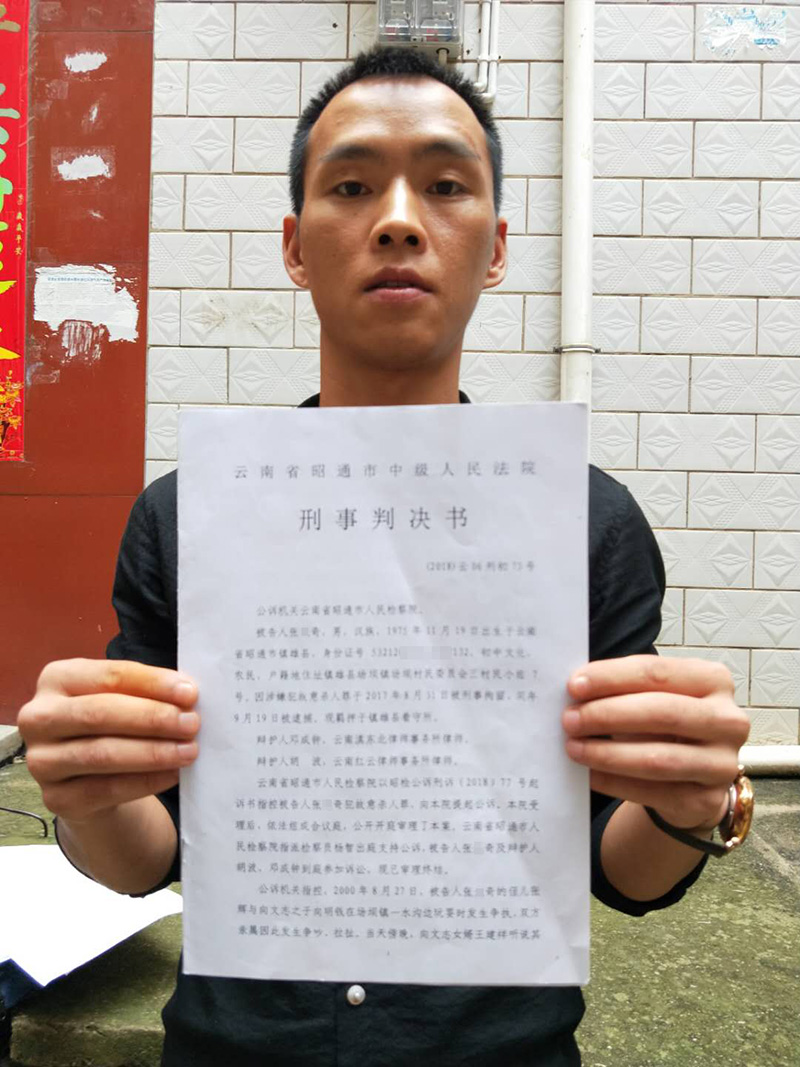 云南省昭通市中级人民法院
刑事判决书
(2018)云06刑初75号
公诉机关云南省昭通市人民检察院。
被告人张 奇，男，汉族，1975年11月19日出生于云南
省昭通市镇雄县，身份证号53212 132，初中文化，
农民，户籍地住址镇雄县场坝镇场坝村民委员会三村民小组7
号。因涉嫌犯故意杀人罪于2017年8月31日被刑事拘留，同年
9月19日被逮捕。现羁押于镇雄县看守所。
辩护人邓成钟，云南滇东北律师事务所律师。
辩护人胡 波，云南红云律师事务所律师。
云南省昭通市人民检察院以昭检公诉刑诉（2018）77号起
诉书指控被告人张 奇犯故意杀人罪，向本院提起公诉。本院受
理后，依法组成合议庭，公开开庭审理了本案。云南省昭通市人
民检察院指派检察员杨智出庭支持公诉，被告人张 奇及辩护人
胡波、邓成钟到庭参加诉讼，现已审理终结。
公诉机关指控，2000年8月27日，被告人张 奇的侄儿张
辉与向文志之子向明钱在场坝镇一水沟边玩耍时发生争执，双方
亲属因此发生争吵、拉扯。当天傍晚，向文志女婿王建祥听说其